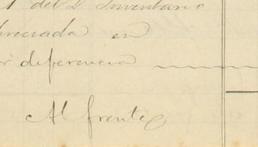 del 2º Inventario
en
diferencia
Al frente